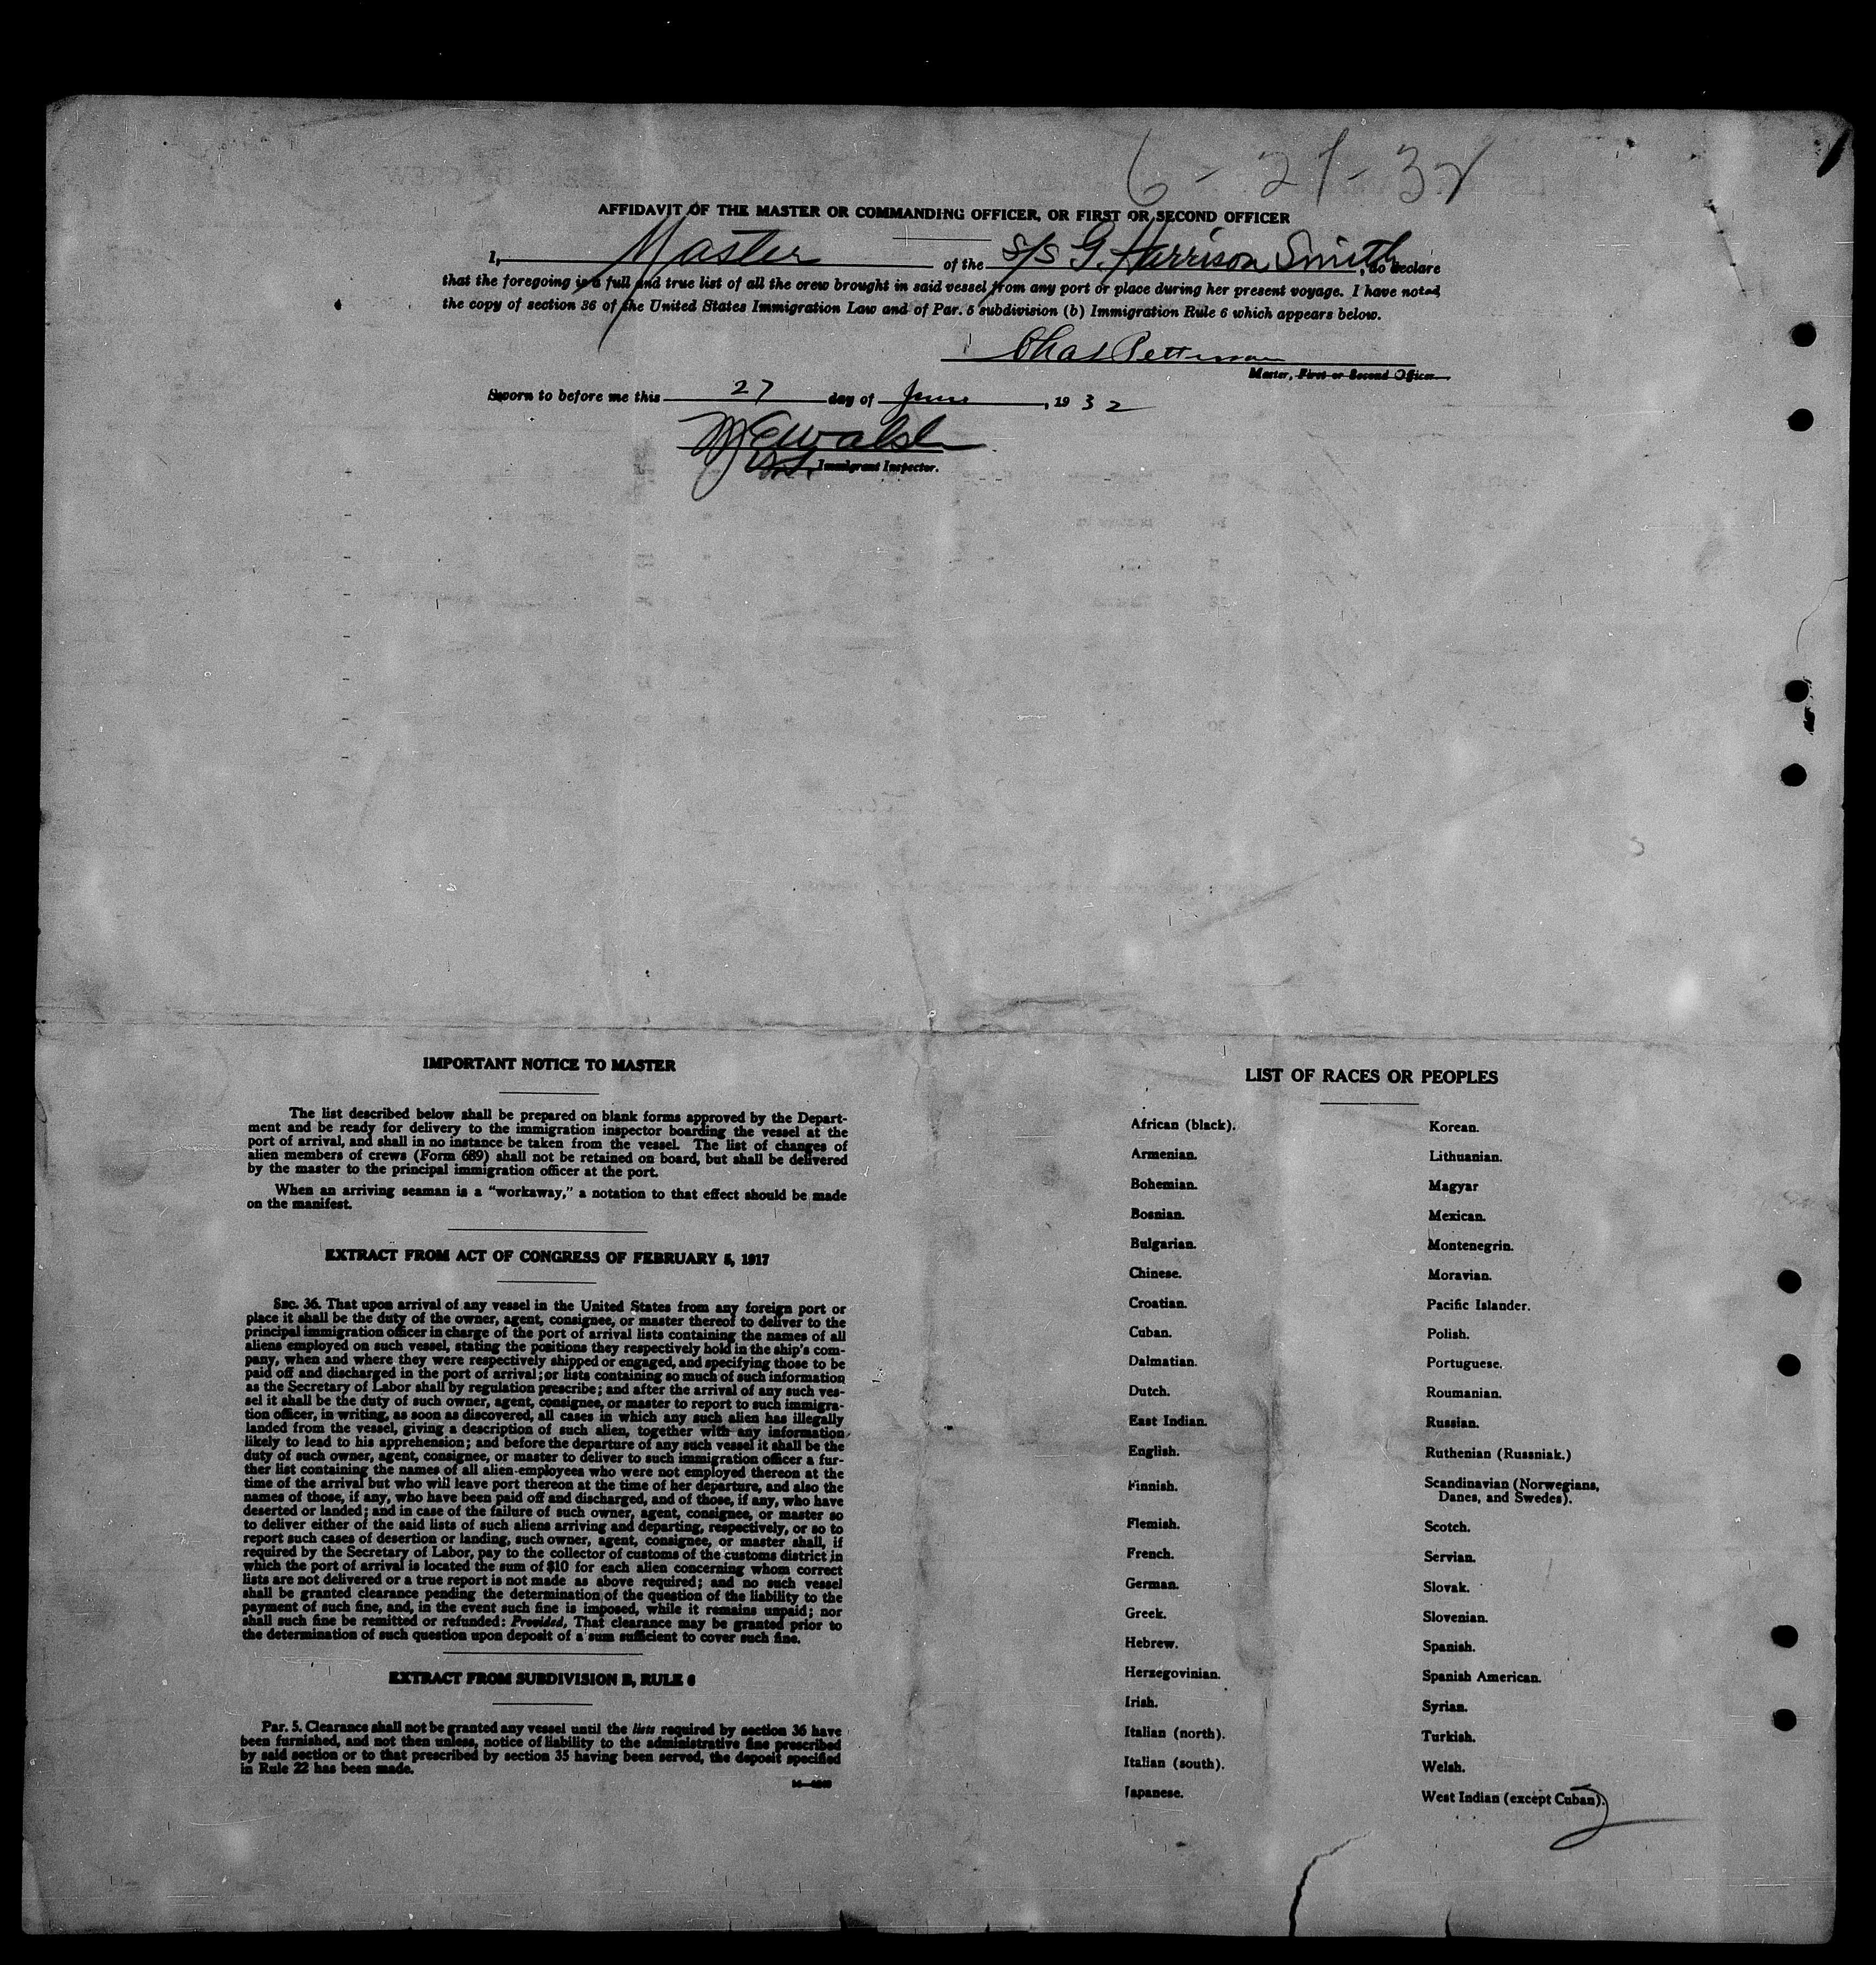 6-27-32
AFFIDAVIT OF THE MASTER OR COMMANDING OFFICER, OR FIRST OR SECOND OFFICER
I, Master of the S/S G. Harrison Smith, do declare
that the foregoing is a full and true list of all the crew brought in said vessel from any port or place during her present voyage. I have noted
the copy of section 36 of the United States Immigration Law and of Par. 5 subdivision (b) Immigration Rule 6 which appears below.
Chas Petterson
Master, First or Second Officer.
Sworn to before me this 27 day of June, 1932
Walsh
Immigrant Inspector.
IMPORTANT NOTICE TO MASTER
The list described below shall be prepared on blank forms approved by the Depart-
ment and be ready for delivery to the immigration inspector boarding the vessel at the
port of arrival, and shall in no instance be taken from the vessel. The list of changes of
alien members of crews (Form 689) shall not be retained on board, but shall be delivered
by the master to the principal immigration officer at the port.
When an arriving seaman is a "workaway," a notation to that effect should be made
on the manifest.
EXTRACT FROM ACT OF CONGRESS OF FEBRUARY 5, 1917
SEC. 36. That upon arrival of any vessel in the United States from any foreign port or
place it shall be the duty of the owner, agent, consignee, or master thereof to deliver to the
principal immigration officer in charge of the port of arrival lists containing the names of all
aliens employed on such vessel, stating the positions they respectively hold in the ship's com-
pany, when and where they were respectively shipped or engaged, and specifying those to be
paid off and discharged in the port of arrival; or lists containing so much of such information
as the Secretary of Labor shall by regulation prescribe; and after the arrival of any such ves-
sel it shall be the duty of such owner, agent, consignee, or master to report to such immigra-
tion officer, in writing, as soon as discovered, all cases in which any such alien has illegally
landed from the vessel, giving a description of such alien, together with any information
likely to lead to his apprehension; and before the departure of any such vessel it shall be the
duty of such owner, agent, consignee, or master to deliver to such immigration officer a fur-
ther list containing the names of all alien employees who were not employed thereon at the
time of the arrival but who will leave port thereon at the time of her departure, and also the
names of those, if any, who have been paid off and discharged, and of those, if any, who have
deserted or landed; and in case of the failure of such owner, agent, consignee, or master so
to deliver either of the said lists of such aliens arriving and departing, respectively, or so to
report such cases of desertion or landing, such owner, agent, consignee, or master shall, if
required by the Secretary of Labor, pay to the collector of customs of the customs district in
which the port of arrival is located the sum of $10 for each alien concerning whom correct
lists are not delivered or a true report is not made as above required; and no such vessel
shall be granted clearance pending the determination of the question of the liability to the
payment of such fine, and, in the event such fine is imposed, while it remains unpaid; nor
shall such fine be remitted or refunded: Provided, That clearance may be granted prior to
the determination of such question upon deposit of a sum sufficient to cover such fine.
EXTRACT FROM SUBDIVISION B, RULE 6
Par. 5. Clearance shall not be granted any vessel until the lists required by section 36 have
been furnished, and not then unless, notice of liability to the administrative fine prescribed
by said section or to that prescribed by section 35 having been served, the deposit specified
in Rule 22 has been made.
LIST OF RACES OR PEOPLES
African (black).
Armenian.
Bohemian.
Bosnian.
Bulgarian.
Chinese.
Croatian.
Cuban.
Dalmatian.
Dutch.
East Indian.
English.
Finnish.
Flemish.
French.
German.
Greek.
Hebrew.
Herzegovinian.
Irish.
Italian (north).
Italian (south).
Japanese.
Korean.
Lithuanian.
Magyar
Mexican.
Montenegrin.
Moravian.
Pacific Islander.
Polish.
Portuguese.
Roumanian.
Russian.
Ruthenian (Russniak.)
Scandinavian (Norwegians,
Danes, and Swedes).
Scotch.
Servian.
Slovak.
Slovenian.
Spanish.
Spanish American.
Syrian.
Turkish.
Welsh.
West Indian (except Cuban).